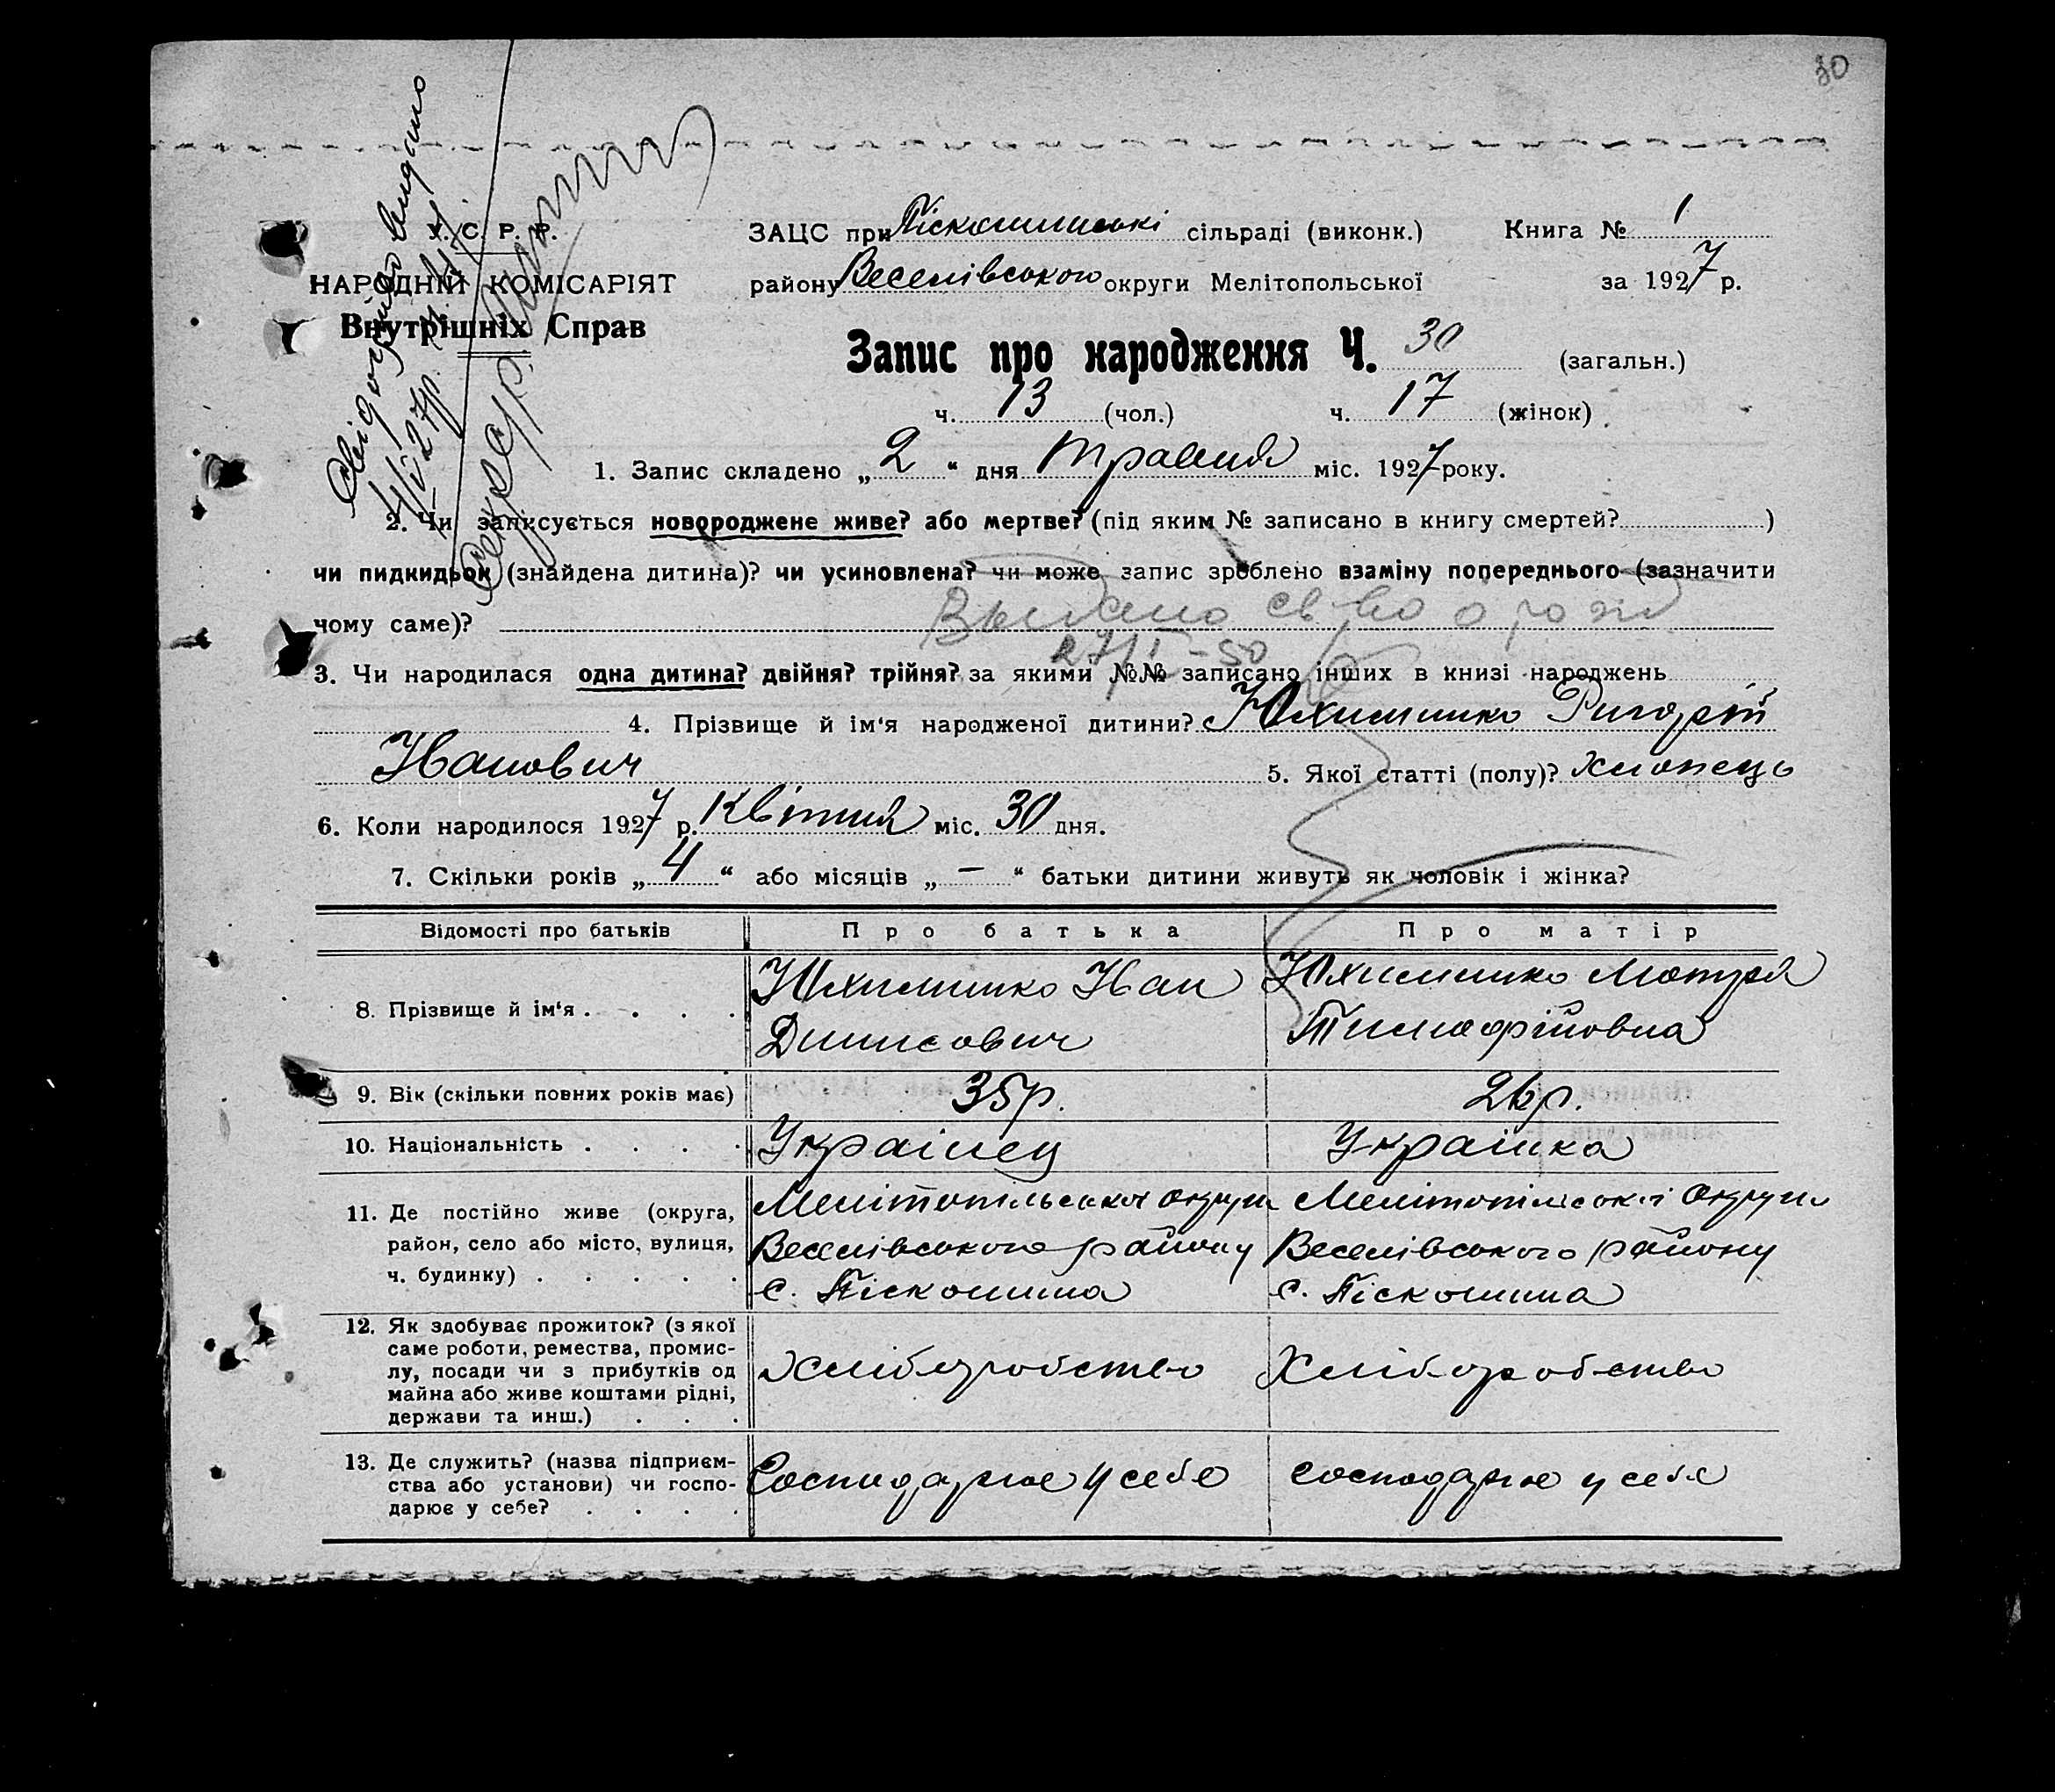 30
Свідоцтво видано
4/V 27р.
Секретар
У. С. Р. Р.
НАРОДНІЙ КОМІСАРІЯТ
Внутрішніх Справ
ЗАЦС при Піскошинські сільраді (виконк.) Книга № 1
району Веселівського округи Мелітопольської за 1927 р.
Запис про народження Ч. 30 (загальн.)
ч. 13 (чол.) ч. 17 (жінок)
1. Запис складено „ 2 “ дня травня міс. 1927 року.
2. Чи записується новороджене живе? або мертве? (під яким № записано в книгу смертей? )
чи пидкидьок (знайдена дитина)? чи усиновлена? чи може запис зроблено взаміну попереднього (зазначити
чому саме)?
Выдано св-во о рожд
27/I-50
3. Чи народилася одна дитина? двійня? трійня? за якими №№ записано інших в книзі народжень
4. Прізвище й ім‘я народженої дитини? Юхименко Григорій
Иванович 5. Якої статті (полу)? хлопець
6. Коли народилося 1927 р. Квітня міс. 30 дня.
7. Скільки років „ 4 “ або місяців „ — “ батьки дитини живуть як чоловік і жінка?
Відомості про батьків Про батька Про матір
8. Прізвище й ім‘я . . . . Юхименко Иван Юхименко Мотря
Динисович Тимофійовна
9. Вік (скільки повних років має) 35р. 26р.
10. Національність . . . . Українец Українка
11. Де постійно живе (округа, Мелітопільської округи Мелітопільської округи
район, село або місто, вулиця, Веселівського району Веселівського району
ч. будинку) . . . . . с. Піскошина с. Піскошина
12. Як здобуває прожиток? (з якої
саме роботи, ремества, промис-
лу, посади чи з прибутків од хліборобство Хліборобство
майна або живе коштами рідні,
держави та инш.) . . .
13. Де служить? (назва підприєм-
ства або установи) чи госпо- Господарює у себе господарює у себе
дарює у себе? . . . .